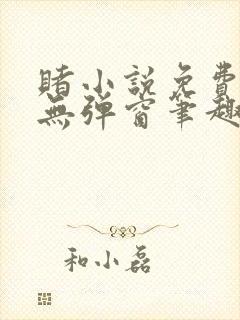 睹小説免費
無弹窗笔趣
和小磊